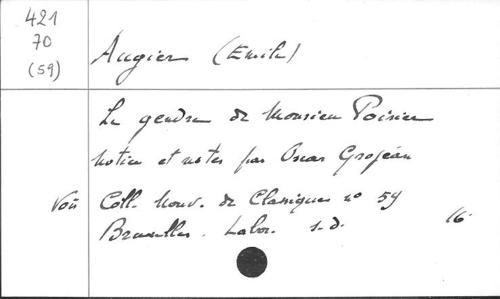 421
70
(59)
Augier (Emile)
Le gendre de Monsieur Poirier
Notice et notes par Oscar Grojean
Voir Coll. Nouv. de Classiques n° 59
Bruxelles. Labor. s.d. 16°